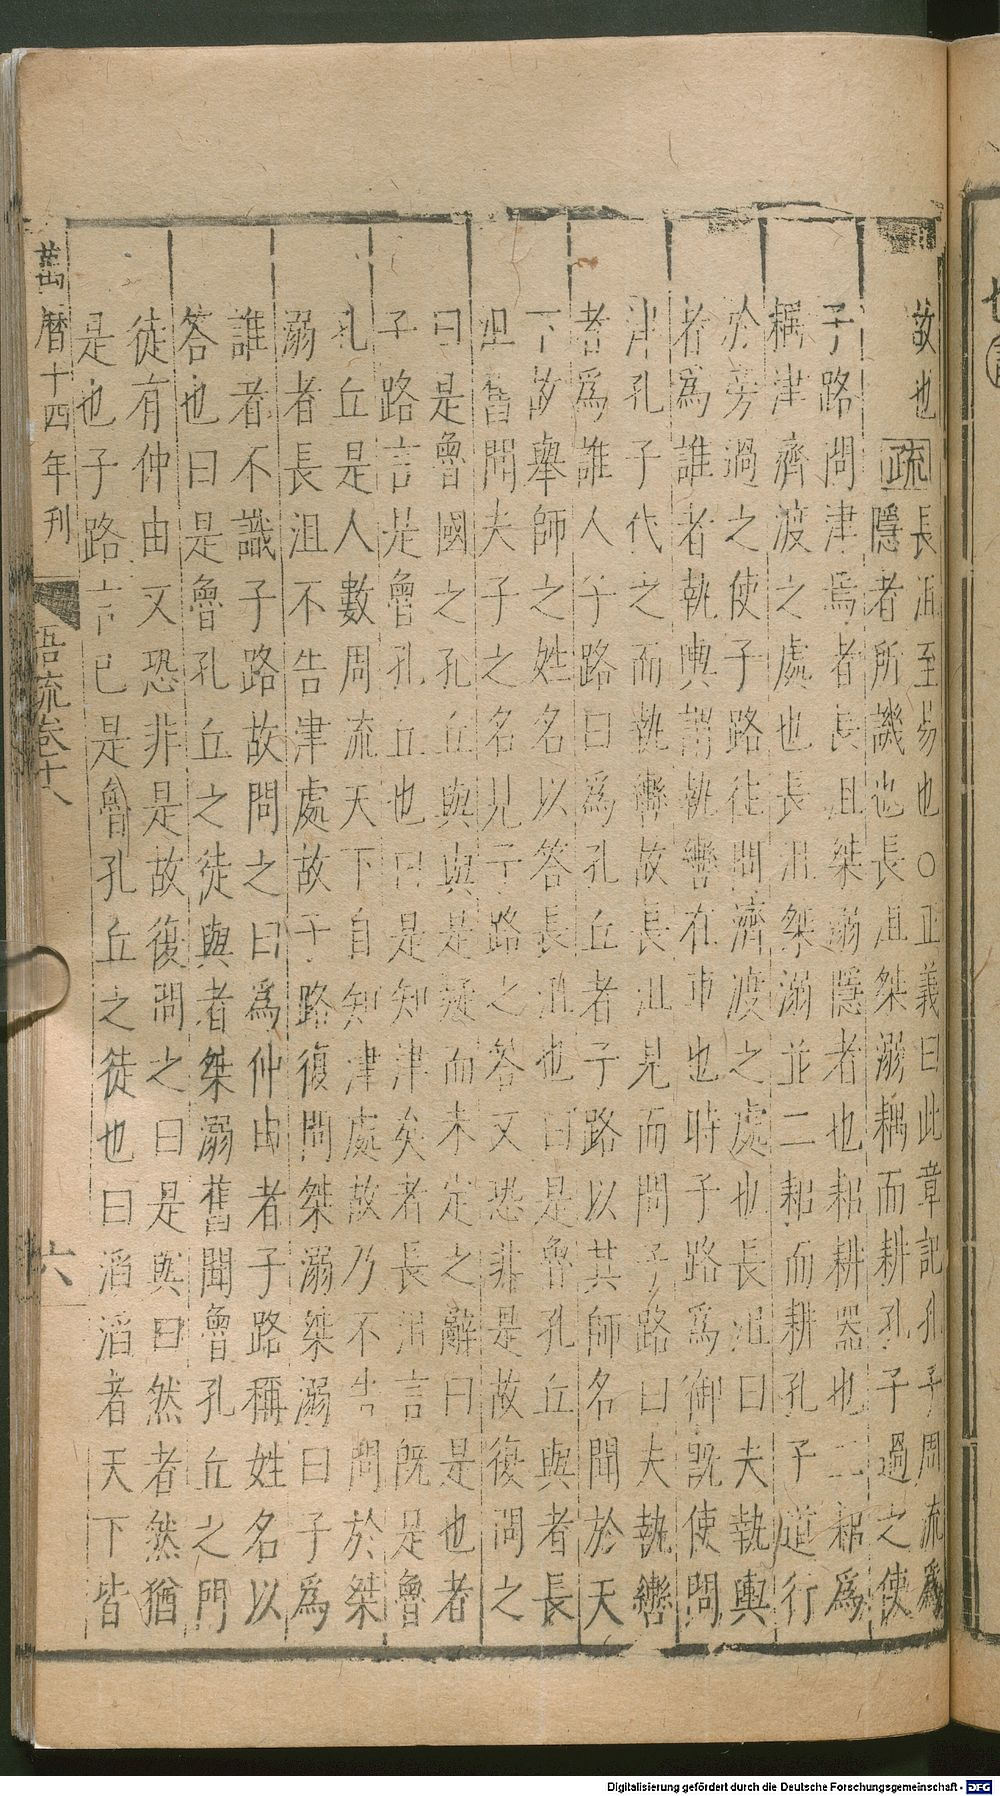 故也疏長沮至易也○正義曰此章記孔子周流爲
隱者所譏也長沮桀溺耦而耕孔子過之使
子路問津焉者長沮桀溺隱者也耜耕器也二耜爲
耦津濟渡之處也長沮桀溺並二耜而耕孔子道行
於旁過之使子路往問濟渡之處也長沮曰夫執輿
者爲誰者執輿謂執轡在車也時子路爲御既使問
津孔子代之而執轡故長沮見而問子路曰夫執轡
者爲誰人子路曰爲孔丘者子路以其師名聞於天
下故舉師之姓名以答長沮也曰是魯孔丘與者長
沮舊聞夫子之名見子路之答又恐非是故復問之
曰是魯國之孔丘與與是疑而未定之辭曰是也者
子路言是魯孔丘也曰是知津矣者長沮言既是魯
孔丘是人數周流天下自知津處故乃不告問於桀
溺者長沮不告津處故子路復問桀溺桀溺曰子爲
誰者不識子路故問之曰爲仲由者子路稱姓名以
答也曰是魯孔丘之徒與者桀溺舊聞魯孔丘之門
徒有仲由又恐非是故復問之曰是與曰然者然猶
是也子路言已是魯孔丘之徒也曰滔滔者天下皆
萬曆十四年刊 語疏卷十八 六
Digitalisierung gefördert durch die Deutsche Forschungsgemeinschaft - DFG